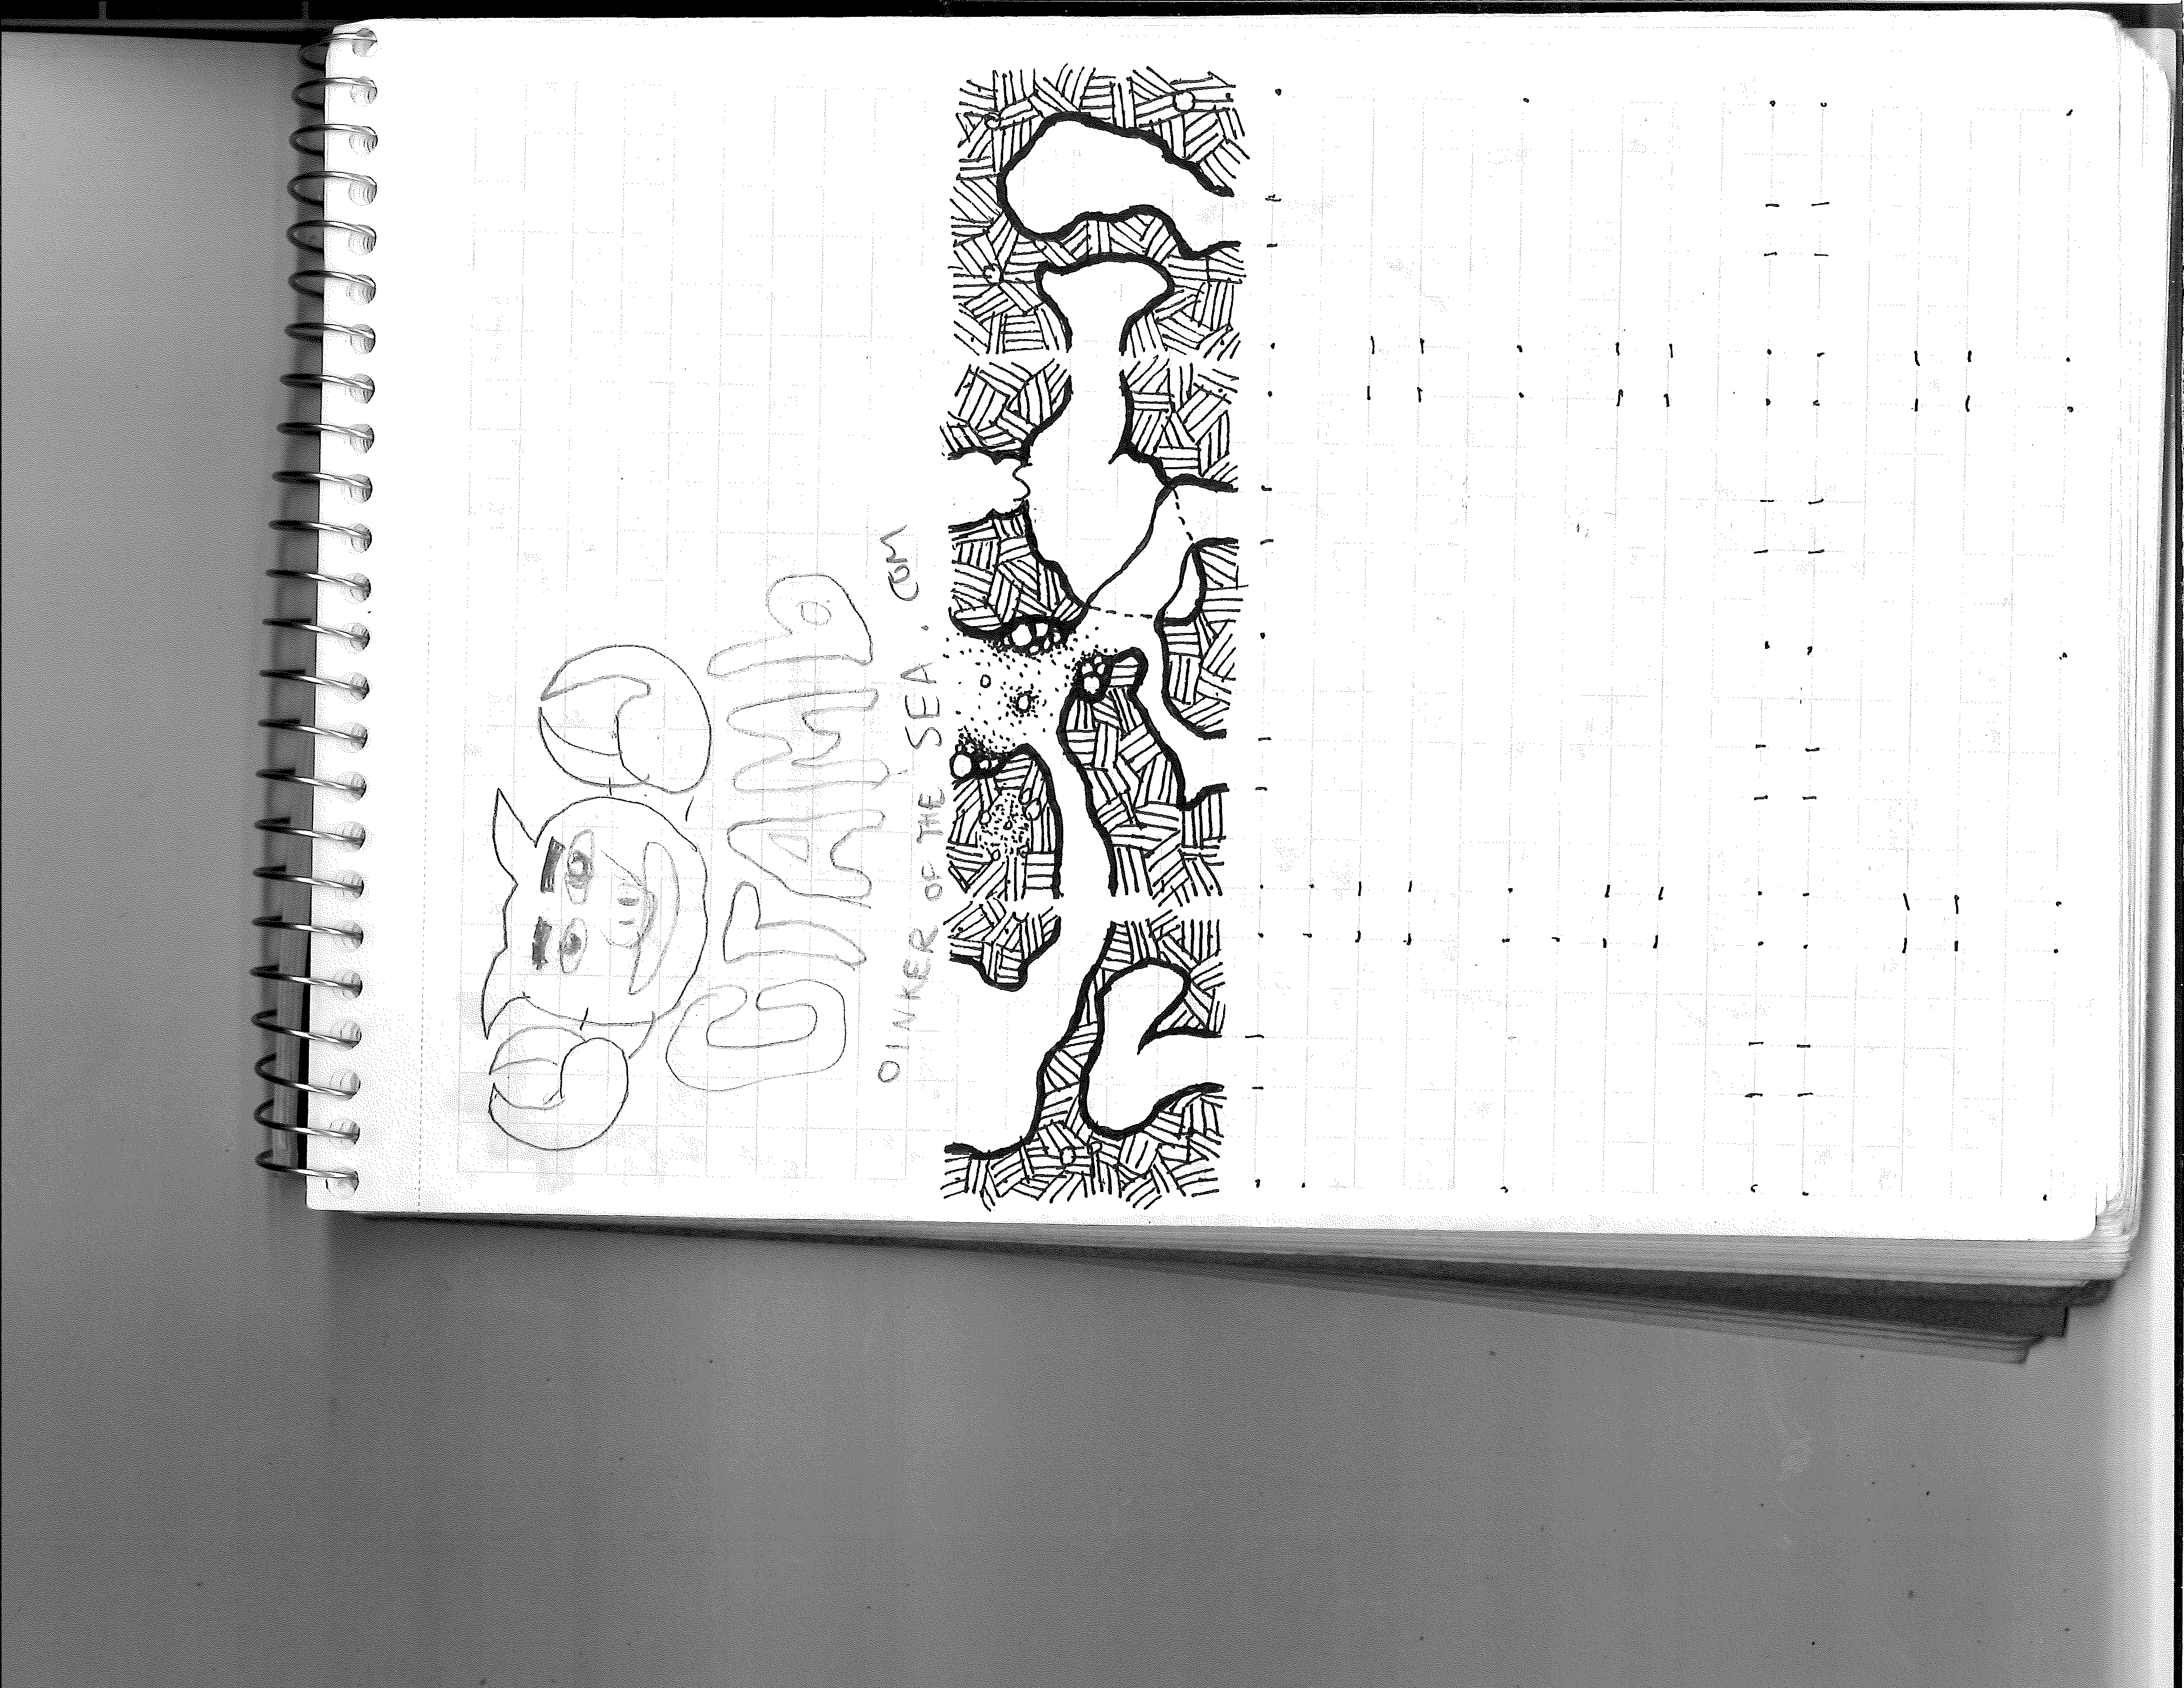 CrAMb
OINKER OF THE SEA. COM